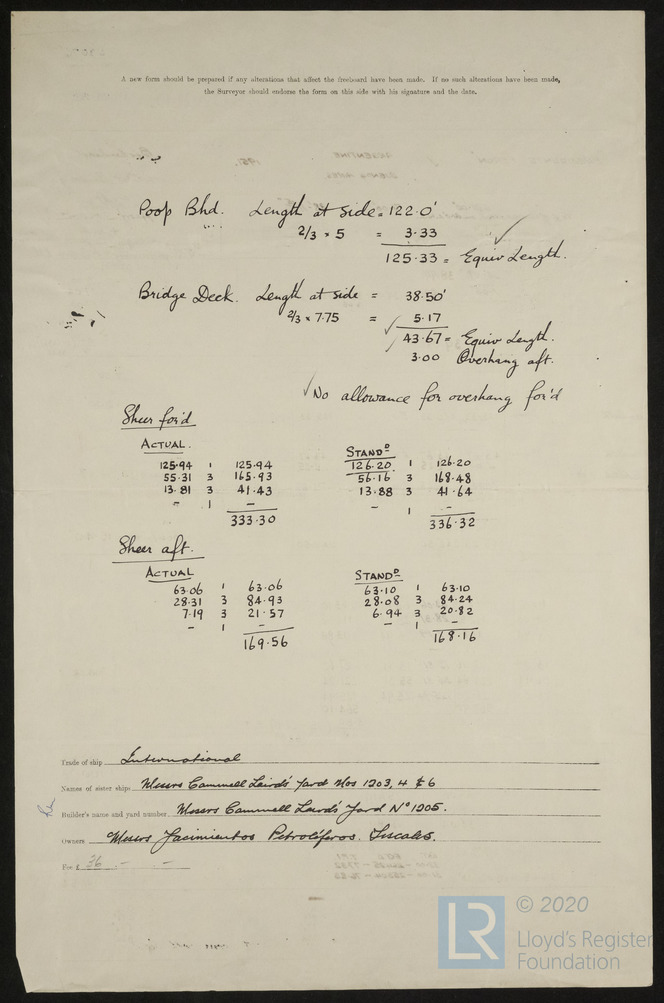 A new form should be prepared if any alterations that affect the freeboard have been made. If no such alterations have been made,
the Surveyor should endorse the form on this side with his signature and the date.
Poop Bhd. Length at side = 122.0'
2/3 × 5 = 3.33
125.33 = Equiv Length.
Bridge Deck. Length at side = 38.50'
2/3 × 7.75 = 5.17
43.67 = Equiv Length.
3.00 Overhang aft.
No allowance for overhang for'd
Sheer for'd
ACTUAL. STAND^D
125.94 1 125.94 126.20 1 126.20
55.31 3 165.93 56.16 3 168.48
13.81 3 41.43 13.88 3 41.64
- 1 - - 1 -
333.30 336.32
Sheer aft.
ACTUAL STAND^D
63.06 1 63.06 63.10 1 63.10
28.31 3 84.93 28.08 3 84.24
7.19 3 21.57 6.94 3 20.82
- 1 - - 1 -
169.56 168.16
Trade of ship International
Names of sister ships Messrs Cammell Lairds' Yard Nos 1203, 4 & 6
Builder's name and yard number Messrs Cammell Lairds' Yard No 1205.
Owners Messrs Yacimientos Petroliferos. Fiscales.
Fee £ 36 . - . -
LR
© 2020
Lloyd's Register
Foundation